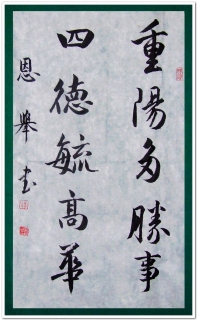 重陽多勝事
四德毓高華
恩舉书